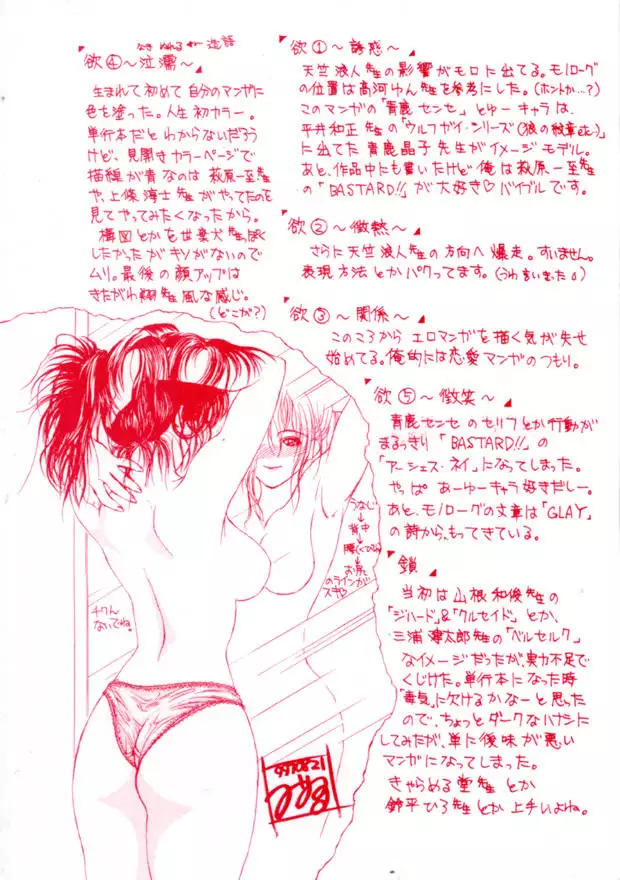 欲①～誘惑～
天竺浪人先生の影響がモロに出てる。モノローグ
の位置は高河ゆん先生を参考にした。(ホントか…?)
このマンガの「青鹿センセ」とゆーキャラは、
平井和正先生の「ウルフガイ・シリーズ(狼の紋章etc…)
に出てた青鹿晶子先生がイメージモデル。
あと、作品中にも書いたけど俺は萩原一至先生
の「BASTARD!!」が大好き♡バイブルです。
欲②～微熱～
さらに天竺浪人先生の方向へ爆走。すいません。
表現方法とかパクってます。(うわ言いきった)
欲③～関係～
このころからエロマンガを描く気が失せ
始めてる。俺的には恋愛マンガのつもり。
なき ぬれる ← 造語
欲④～泣濡～
生まれて初めて自分のマンガに
色を塗った。人生初カラー。
単行本だとわからないだろう
けど、見開きカラーページで
描線が青なのは萩原一至先生
や、上條淳士先生がやってたのを
見てやってみたくなったから。
構図とかを世棄犬先生っぽく
したかったがキソがないので
ムリ。最後の顔アップは
きたがわ翔先生風な感じ。
(どこが?)
欲⑤～微笑～
青鹿センセのセリフとか行動が
まるっきり「BASTARD!!」の
「アーシェス・ネイ」になってしまった。
やっぱあーゆーキャラ好きだしー。
あと、モノローグの文章は「GLAY」
の詩から、もってきている。
鎖
当初は山根和俊先生の
「ジハード」&「クルセイド」とか、
三浦建太郎先生の「ベルセルク」
なイメージだったが、実力不足で
くじけた。単行本になった時
「毒気」に欠けるかなーと思った
ので、ちょっとダークなハナシに
してみたが、単に後味が悪い
マンガになってしまった。
きゃらめる堂先生とか
鈴平ひろ先生とか上手いよね。
うなじ
↓
背中
↓
腰(くびれ)
↓
お尻
のラインが
スキ♡
チクん
ないでね。
990821